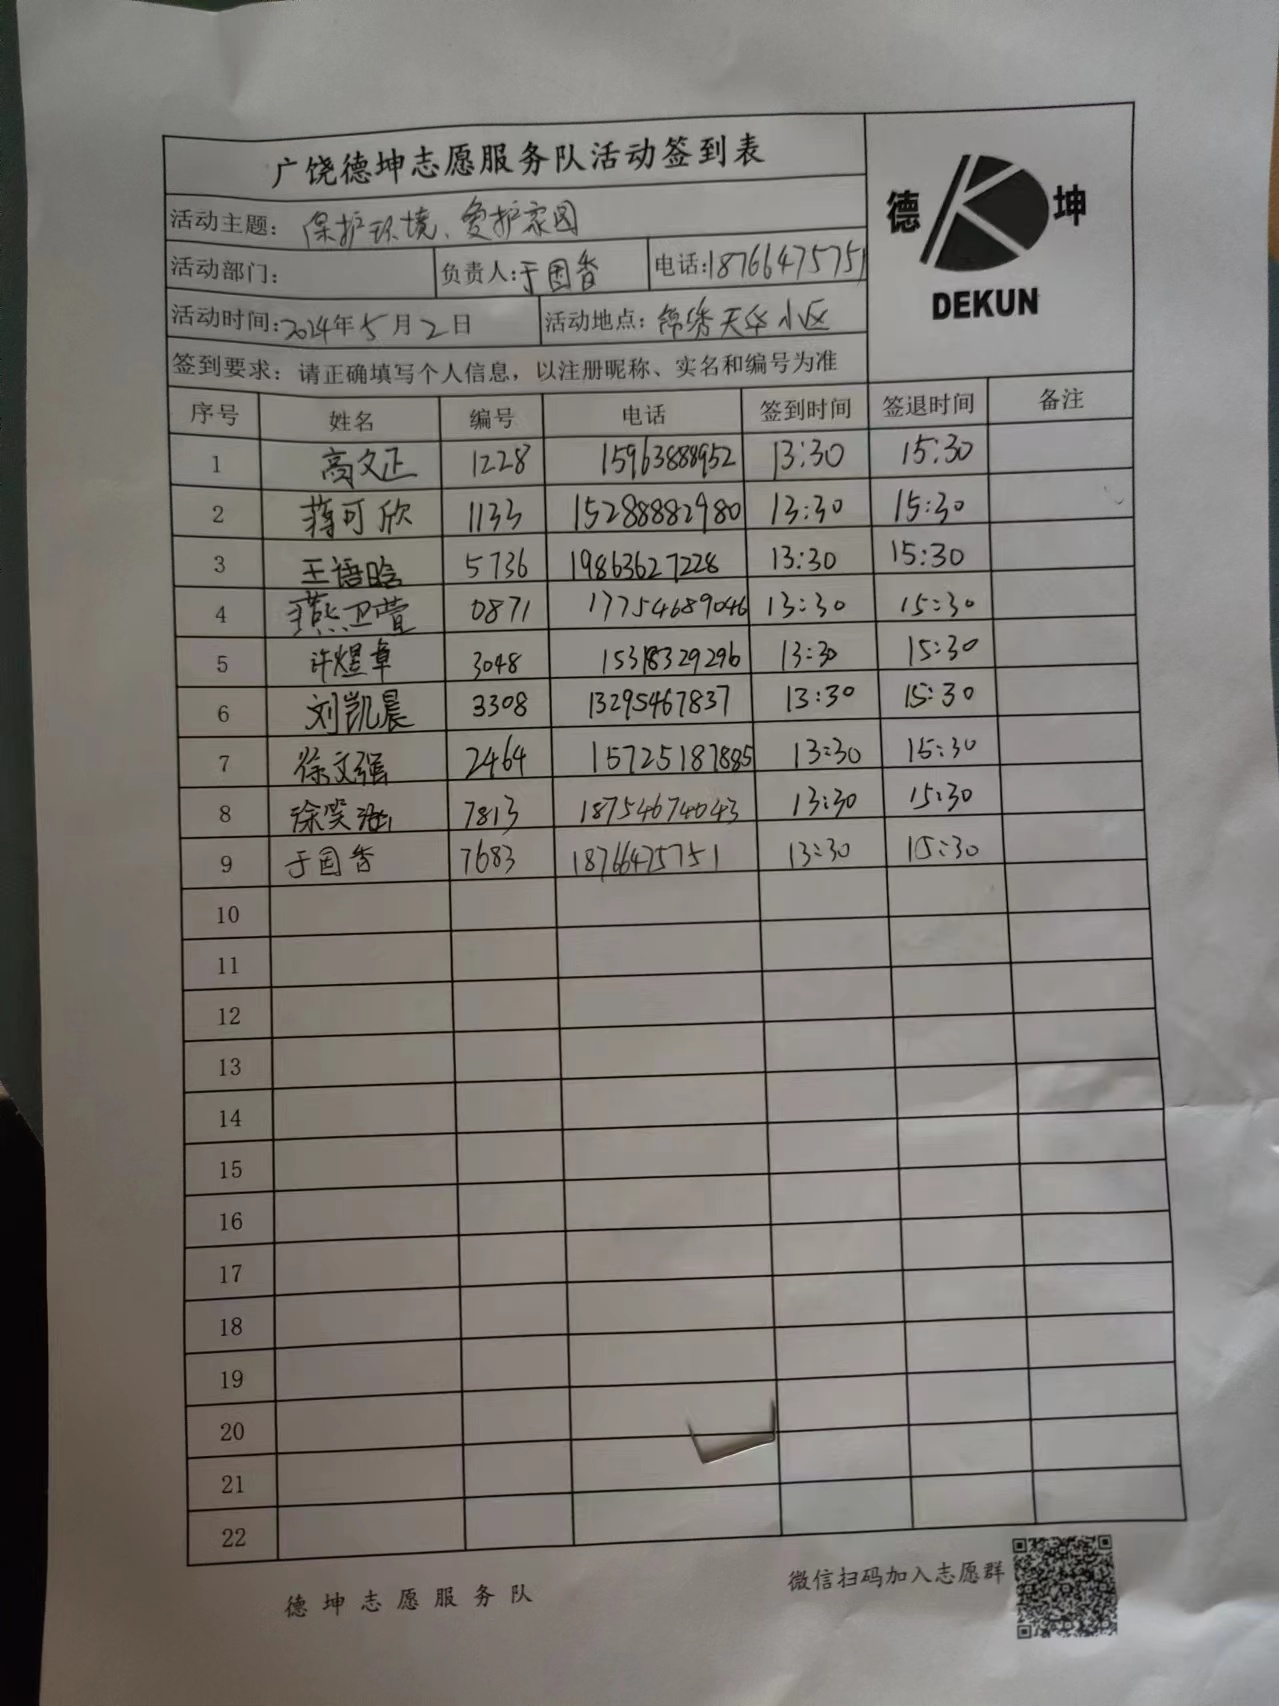 广饶德坤志愿服务队活动签到表
德 坤
DEKUN
活动主题：保护环境、爱护家园
活动部门： 负责人：于国香 电话：18766475751
活动时间：2024年5月2日 活动地点：锦绣天华小区
签到要求：请正确填写个人信息，以注册昵称、实名和编号为准
序号 姓名 编号 电话 签到时间 签退时间 备注
1 高文正 1228 15963888952 13:30 15:30
2 蒋可欣 1133 15288882980 13:30 15:30
3 王语晗 5736 19863627228 13:30 15:30
4 燕卫萱 0871 17754689046 13:30 15:30
5 许煜章 3048 15318329296 13:30 15:30
6 刘凯晨 3308 13295467837 13:30 15:30
7 徐文强 2464 15725187885 13:30 15:30
8 徐笑涵 7813 18754674043 13:30 15:30
9 于国香 7683 18766475751 13:30 15:30
10
11
12
13
14
15
16
17
18
19
20
21
22
德坤志愿服务队 微信扫码加入志愿群